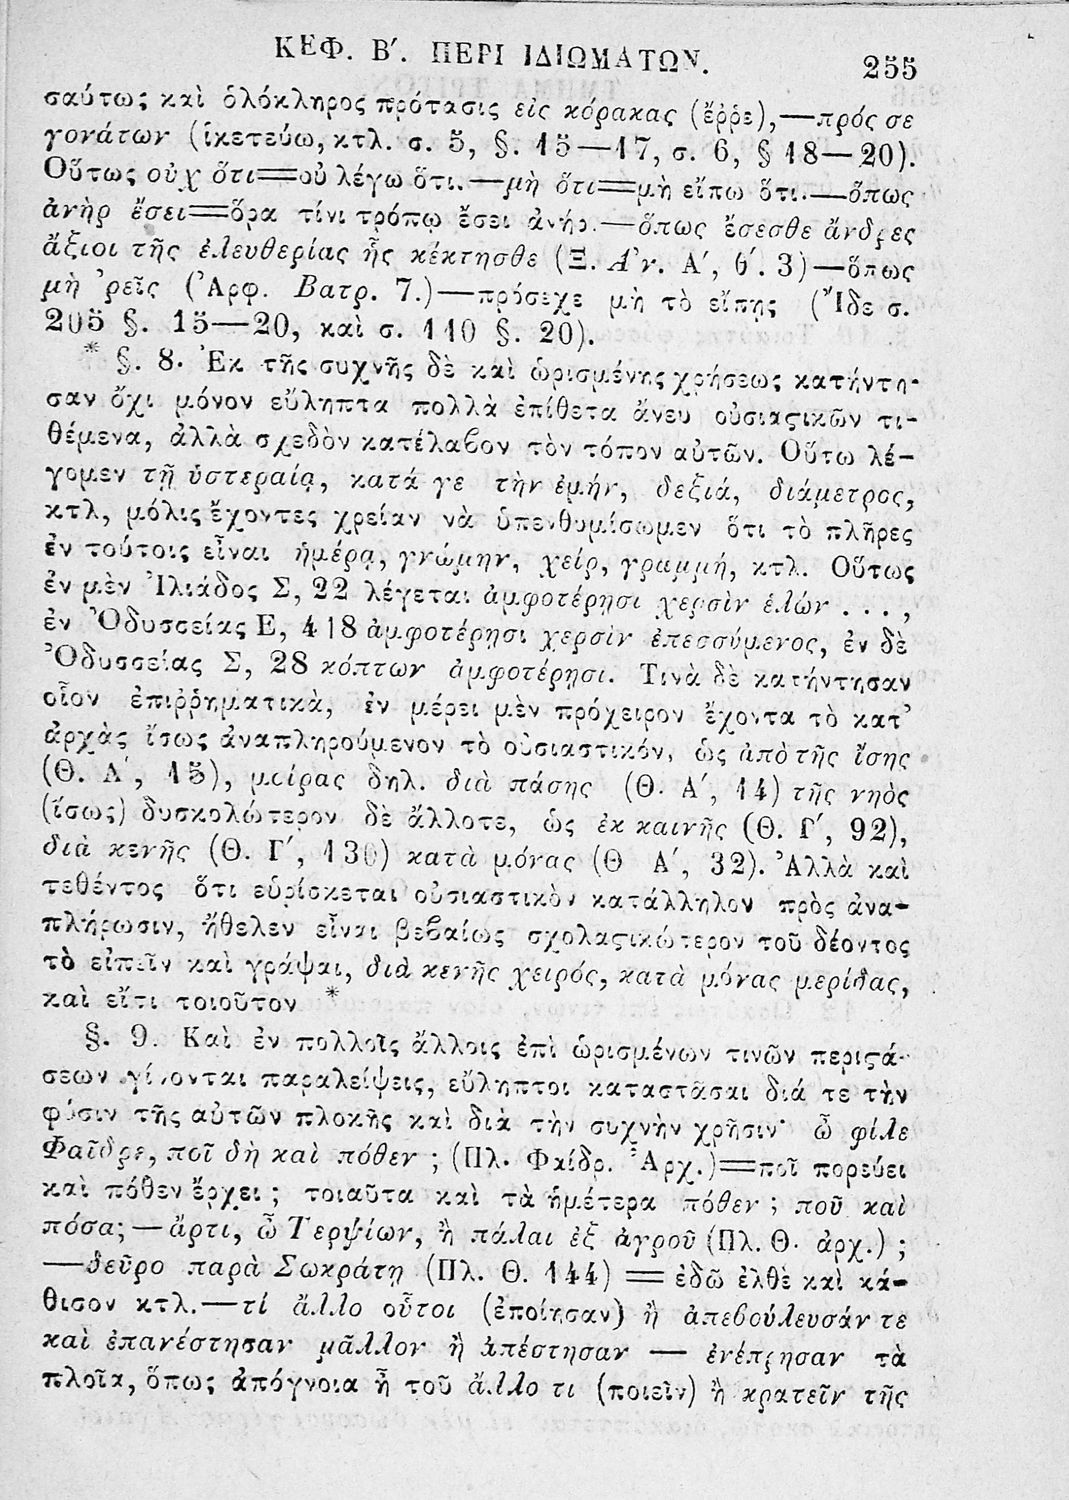 ΚΕΦ. Β΄. ΠΕΡΙ ΙΔΙΩΜΑΤΩΝ. 255
σαύτως καὶ ὁλόκληρος πρότασις εἰς κόρακας (ἔῤῥε),—πρός σε
γονάτων (ἱκετεύω, κτλ. σ. 5, §. 15—17, σ. 6, § 18—20).
Οὕτως οὐχ ὅτι=οὐ λέγω ὅτι.—μὴ ὅτι=μὴ εἴπω ὅτι.—ὅπως
ἀνὴρ ἔσει=ὅρα τίνι τρόπῳ ἔσει ἀνήρ.—ὅπως ἔσεσθε ἄνδρες
ἄξιοι τῆς ἐλευθερίας ἧς κέκτησθε (Ξ. Ἀν. Α΄, θ΄. 3)—ὅπως
μὴ ʼρεῖς (Ἀρφ. Βατρ. 7.)—πρόσεχε μὴ τὸ εἴπῃς (Ἴδε σ.
205 §. 15—20, καὶ σ. 110 §. 20).
* §. 8. Ἐκ τῆς συχνῆς δὲ καὶ ὡρισμένης χρήσεως κατήντη-
σαν ὄχι μόνον εὔληπτα πολλὰ ἐπίθετα ἄνευ οὐσιαϛικῶν τι-
θέμενα, ἀλλὰ σχεδὸν κατέλαβον τὸν τόπον αὐτῶν. Οὕτω λέ-
γομεν τῇ ὑστεραίᾳ, κατά γε τὴν ἐμήν, δεξιά, διάμετρος,
κτλ, μόλις ἔχοντες χρείαν νὰ ὑπενθυμίσωμεν ὅτι τὸ πλῆρες
ἐν τούτοις εἶναι ἡμέρᾳ, γνώμην, χείρ, γραμμή, κτλ. Οὕτως
ἐν μὲν Ἰλιάδος Σ, 22 λέγεται ἀμφοτέρῃσι χερσὶν ἑλών ...,
ἐν Ὀδυσσείας Ε, 418 ἀμφοτέρῃσι χερσὶν ἐπεσσύμενος, ἐν δὲ
Ὀδυσσείας Σ, 28 κόπτων ἀμφοτέρῃσι. Τινὰ δὲ κατήντησαν
οἷον ἐπιῤῥηματικὰ, ἐν μέρει μὲν πρόχειρον ἔχοντα τὸ κατ'
ἀρχὰς ἴσως ἀναπληρούμενον τὸ οὐσιαστικόν, ὡς ἀπὸ τῆς ἴσης
(Θ. Α΄, 15), μοίρας δηλ. διὰ πάσης (Θ. Α΄, 14) τῆς νηὸς
(ἴσως) δυσκολώτερον δὲ ἄλλοτε, ὡς ἐκ καινῆς (Θ. Γ΄, 92),
διὰ κενῆς (Θ. Γ΄, 130) κατὰ μόνας (Θ Α΄, 32). Ἀλλὰ καὶ
τεθέντος ὅτι εὑρίσκεται οὐσιαστικὸν κατάλληλον πρὸς ἀνα-
πλήρωσιν, ἤθελεν εἶναι βεβαίως σχολαϛικώτερον τοῦ δέοντος
τὸ εἰπεῖν καὶ γράψαι, διὰ κενῆς χειρός, κατὰ μόνας μερίδας,
καὶ εἴτι τοιοῦτον *
§. 9. Καὶ ἐν πολλοῖς ἄλλοις ἐπὶ ὡρισμένων τινῶν περιϛά-
σεων γίνονται παραλείψεις, εὔληπτοι καταστᾶσαι διά τε τὴν
φύσιν τῆς αὐτῶν πλοκῆς καὶ διὰ τὴν συχνὴν χρῆσιν· ὦ φίλε
Φαῖδρε, ποῖ δὴ καὶ πόθεν ; (Πλ. Φαίδρ. Ἀρχ.)=ποῖ πορεύει
καὶ πόθεν ἔρχει ; τοιαῦτα καὶ τὰ ἡμέτερα πόθεν ; ποῦ καὶ
πόσα;—ἄρτι, ὦ Τερψίων, ἢ πάλαι ἐξ ἀγροῦ (Πλ. Θ. ἀρχ.) ;
—δεῦρο παρὰ Σωκράτη (Πλ. Θ. 144) = ἐδῶ ἐλθὲ καὶ κά-
θισον κτλ.—τί ἄλλο οὗτοι (ἐποίησαν) ἢ ἀπεβούλευσάν τε
καὶ ἐπανέστησαν μᾶλλον ἢ ἀπέστησαν — ἐνέπρησαν τὰ
πλοῖα, ὅπως ἀπόγνοια ᾖ τοῦ ἄλλο τι (ποιεῖν) ἢ κρατεῖν τῆς